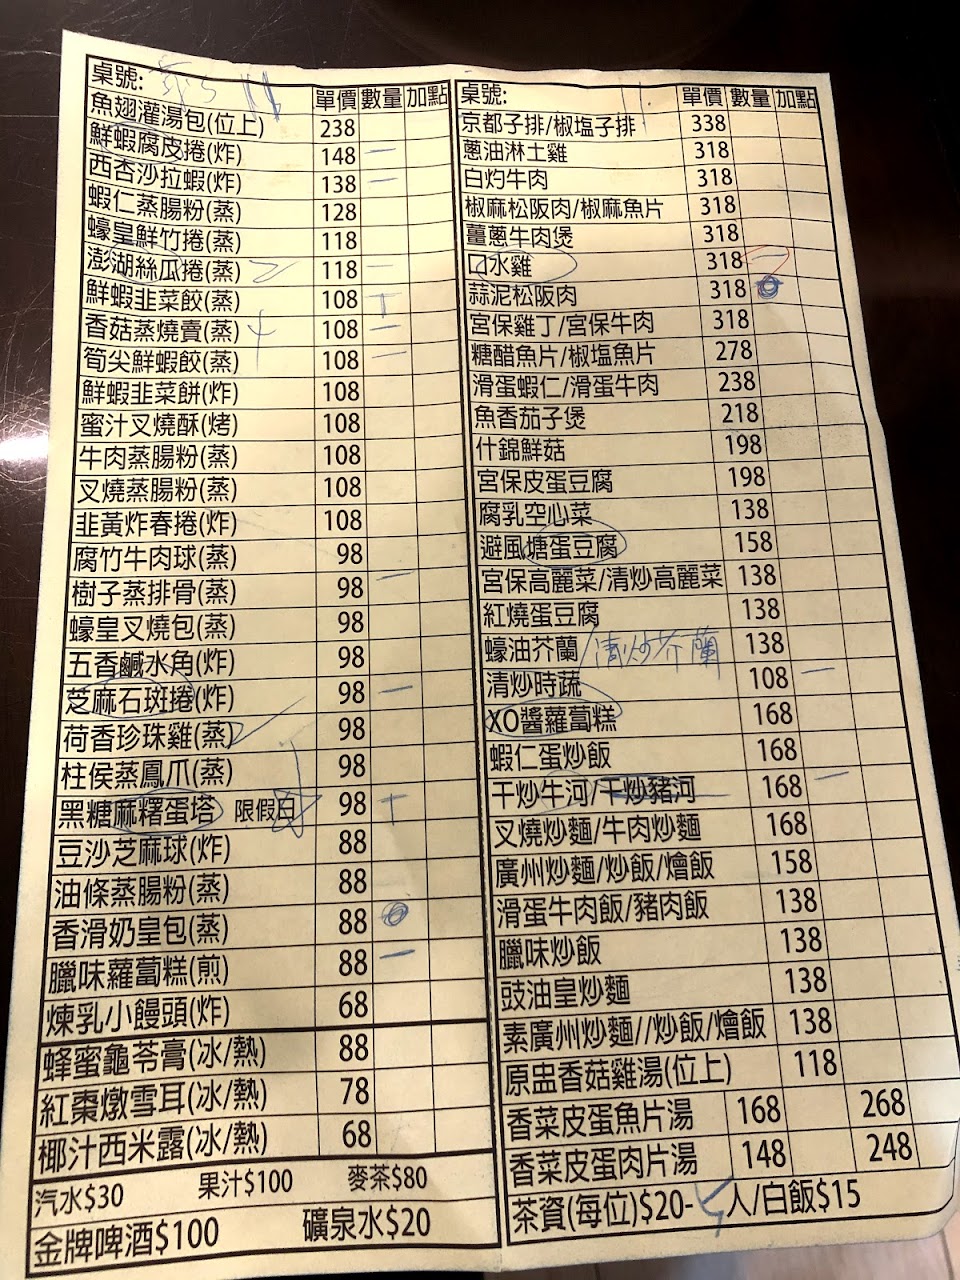 桌號: 單價 數量 加點
魚翅灌湯包(位上) 238
鮮蝦腐皮捲(炸) 148 一
西杏沙拉蝦(炸) 138 一
蝦仁蒸腸粉(蒸) 128
蠔皇鮮竹捲(蒸) 118
澎湖絲瓜捲(蒸) 118 一
鮮蝦韭菜餃(蒸) 108 丅
香菇蒸燒賣(蒸) 108 一
筍尖鮮蝦餃(蒸) 108 一
鮮蝦韭菜餅(炸) 108
蜜汁叉燒酥(烤) 108
牛肉蒸腸粉(蒸) 108
叉燒蒸腸粉(蒸) 108
韭黃炸春捲(炸) 108
腐竹牛肉球(蒸) 98
樹子蒸排骨(蒸) 98 一
蠔皇叉燒包(蒸) 98
五香鹹水角(炸) 98
芝麻石斑捲(炸) 98 一
荷香珍珠雞(蒸) 98
柱侯蒸鳳爪(蒸) 98
黑糖麻糬蛋塔 限假日 98 丅
豆沙芝麻球(炸) 88
油條蒸腸粉(蒸) 88
香滑奶皇包(蒸) 88
臘味蘿蔔糕(煎) 88 一
煉乳小饅頭(炸) 68
蜂蜜龜苓膏(冰/熱) 88
紅棗燉雪耳(冰/熱) 78
椰汁西米露(冰/熱) 68
汽水$30 果汁$100 麥茶$80
金牌啤酒$100 礦泉水$20
桌號: 單價 數量 加點
京都子排/椒塩子排 338
蔥油淋土雞 318
白灼牛肉 318
椒麻松阪肉/椒麻魚片 318
薑蔥牛肉煲 318
口水雞 318 一
蒜泥松阪肉 318
宮保雞丁/宮保牛肉 318
糖醋魚片/椒塩魚片 278
滑蛋蝦仁/滑蛋牛肉 238
魚香茄子煲 218
什錦鮮菇 198
宮保皮蛋豆腐 198
腐乳空心菜 138
避風塘蛋豆腐 158
宮保高麗菜/清炒高麗菜 138
紅燒蛋豆腐 138
蠔油芥蘭/清炒芥蘭 138
清炒時蔬 108 一
XO醬蘿蔔糕 168
蝦仁蛋炒飯 168
干炒牛河/干炒豬河 168 一
叉燒炒麵/牛肉炒麵 168
廣州炒麵/炒飯/燴飯 158
滑蛋牛肉飯/豬肉飯 138
臘味炒飯 138
豉油皇炒麵 138
素廣州炒麵//炒飯/燴飯 138
原盅香菇雞湯(位上) 118
香菜皮蛋魚片湯 168 268
香菜皮蛋肉片湯 148 248
茶資(每位)$20- 人/白飯$15